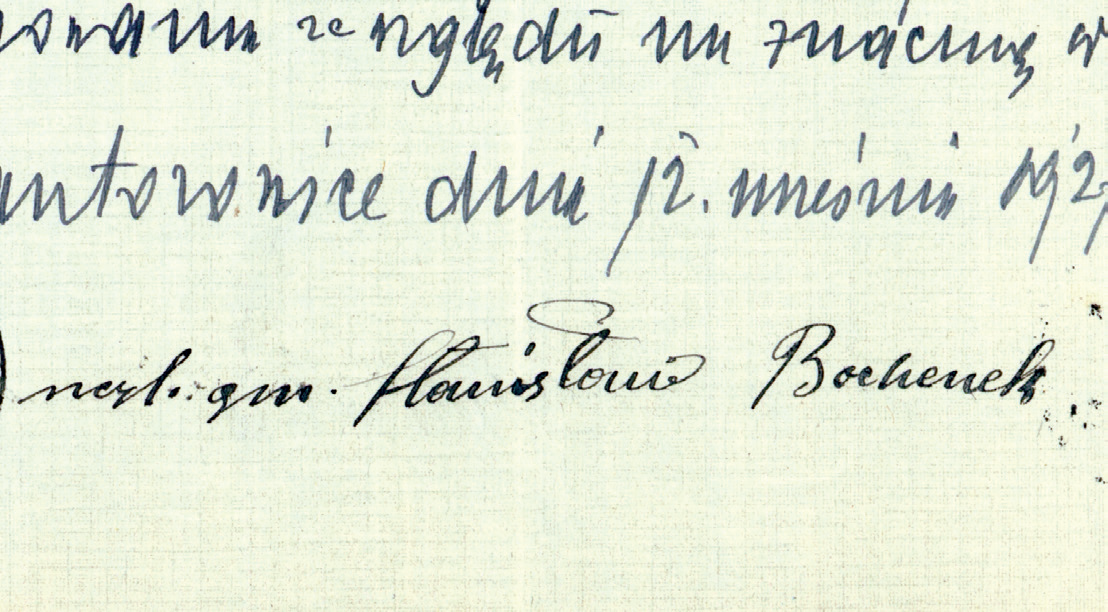 ze względu na znaczną
dnia 12. września 192
nacz. gm. Stanisław Bochenek